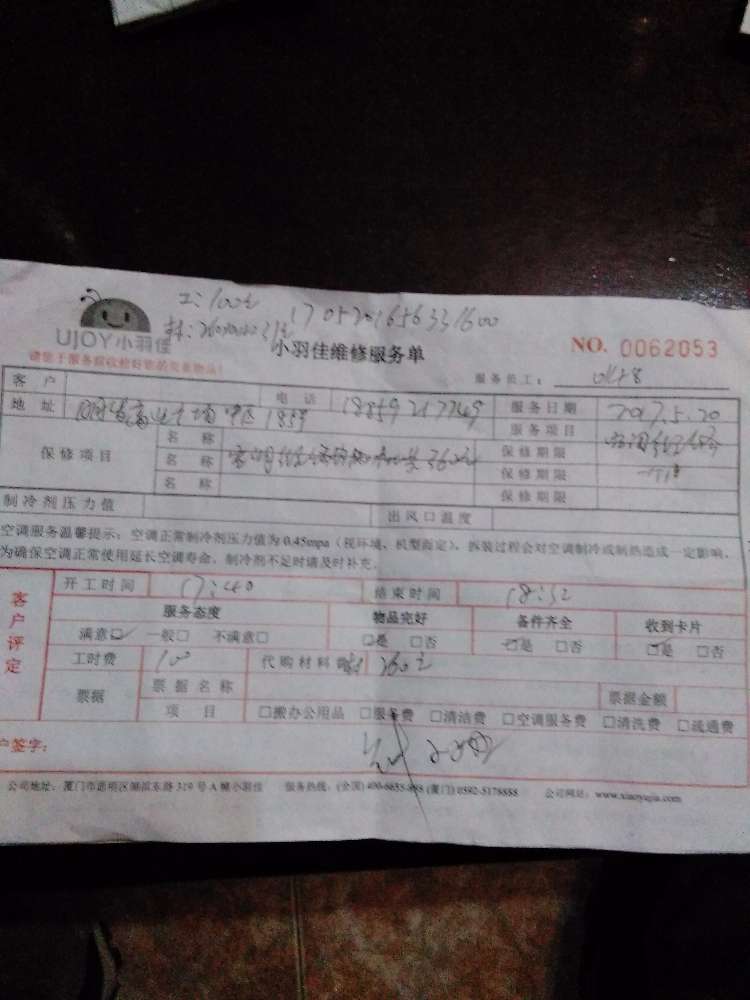 工:100元 1705201656331600
UJOY小羽佳
小羽佳维修服务单
NO. 0062053
请您于服务前收拾好您的贵重物品!
服务员工:
客户 电话 18859217749 服务日期 2017.5.20
地址 服务项目
保修项目 名称 保修期限
名称 保修期限
名称 保修期限
制冷剂压力值 出风口温度
空调服务温馨提示:空调正常制冷剂压力值为0.45mpa(视环境、机型而定),拆装过程会对空调制冷或制热造成一定影响,
为确保空调正常使用延长空调寿命,制冷剂不足时请及时补充。
客户评定
开工时间 17:40 结束时间 18:32
服务态度 物品完好 备件齐全 收到卡片
满意☑ 一般□ 不满意□ ☑是 □否 ☑是 □否 ☑是 □否
工时费 100 代购材料费 360元
票据 票据名称 票据金额
项目 □搬办公用品 □服务费 □清洁费 □空调服务费 □清洗费 □疏通费
户签字:
公司地址:厦门市思明区湖滨东路319号A幢小羽佳 服务热线:(全国)400-6655-888 (厦门)0592-5178888 公司网站:www.xiaoyujia.com